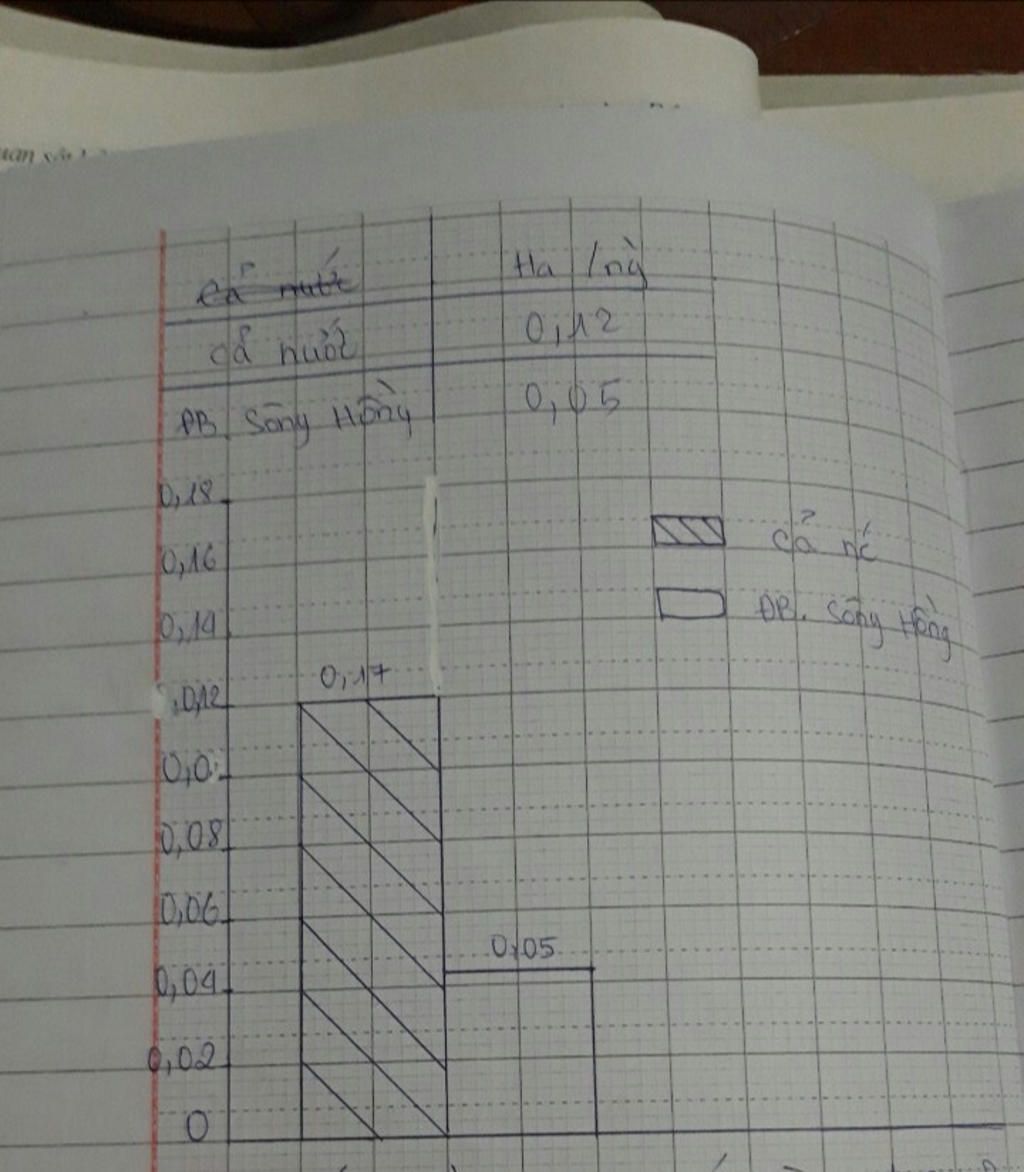 Cả nước Ha /ng`
cả nước 0,12
ĐB. Sông Hồng 0,05
0,18
cả nć
0,16
ĐB. Sông Hồng
0,14
0,17
0,12
0,0
0,08
0,06
0,05
0,04
0,02
0